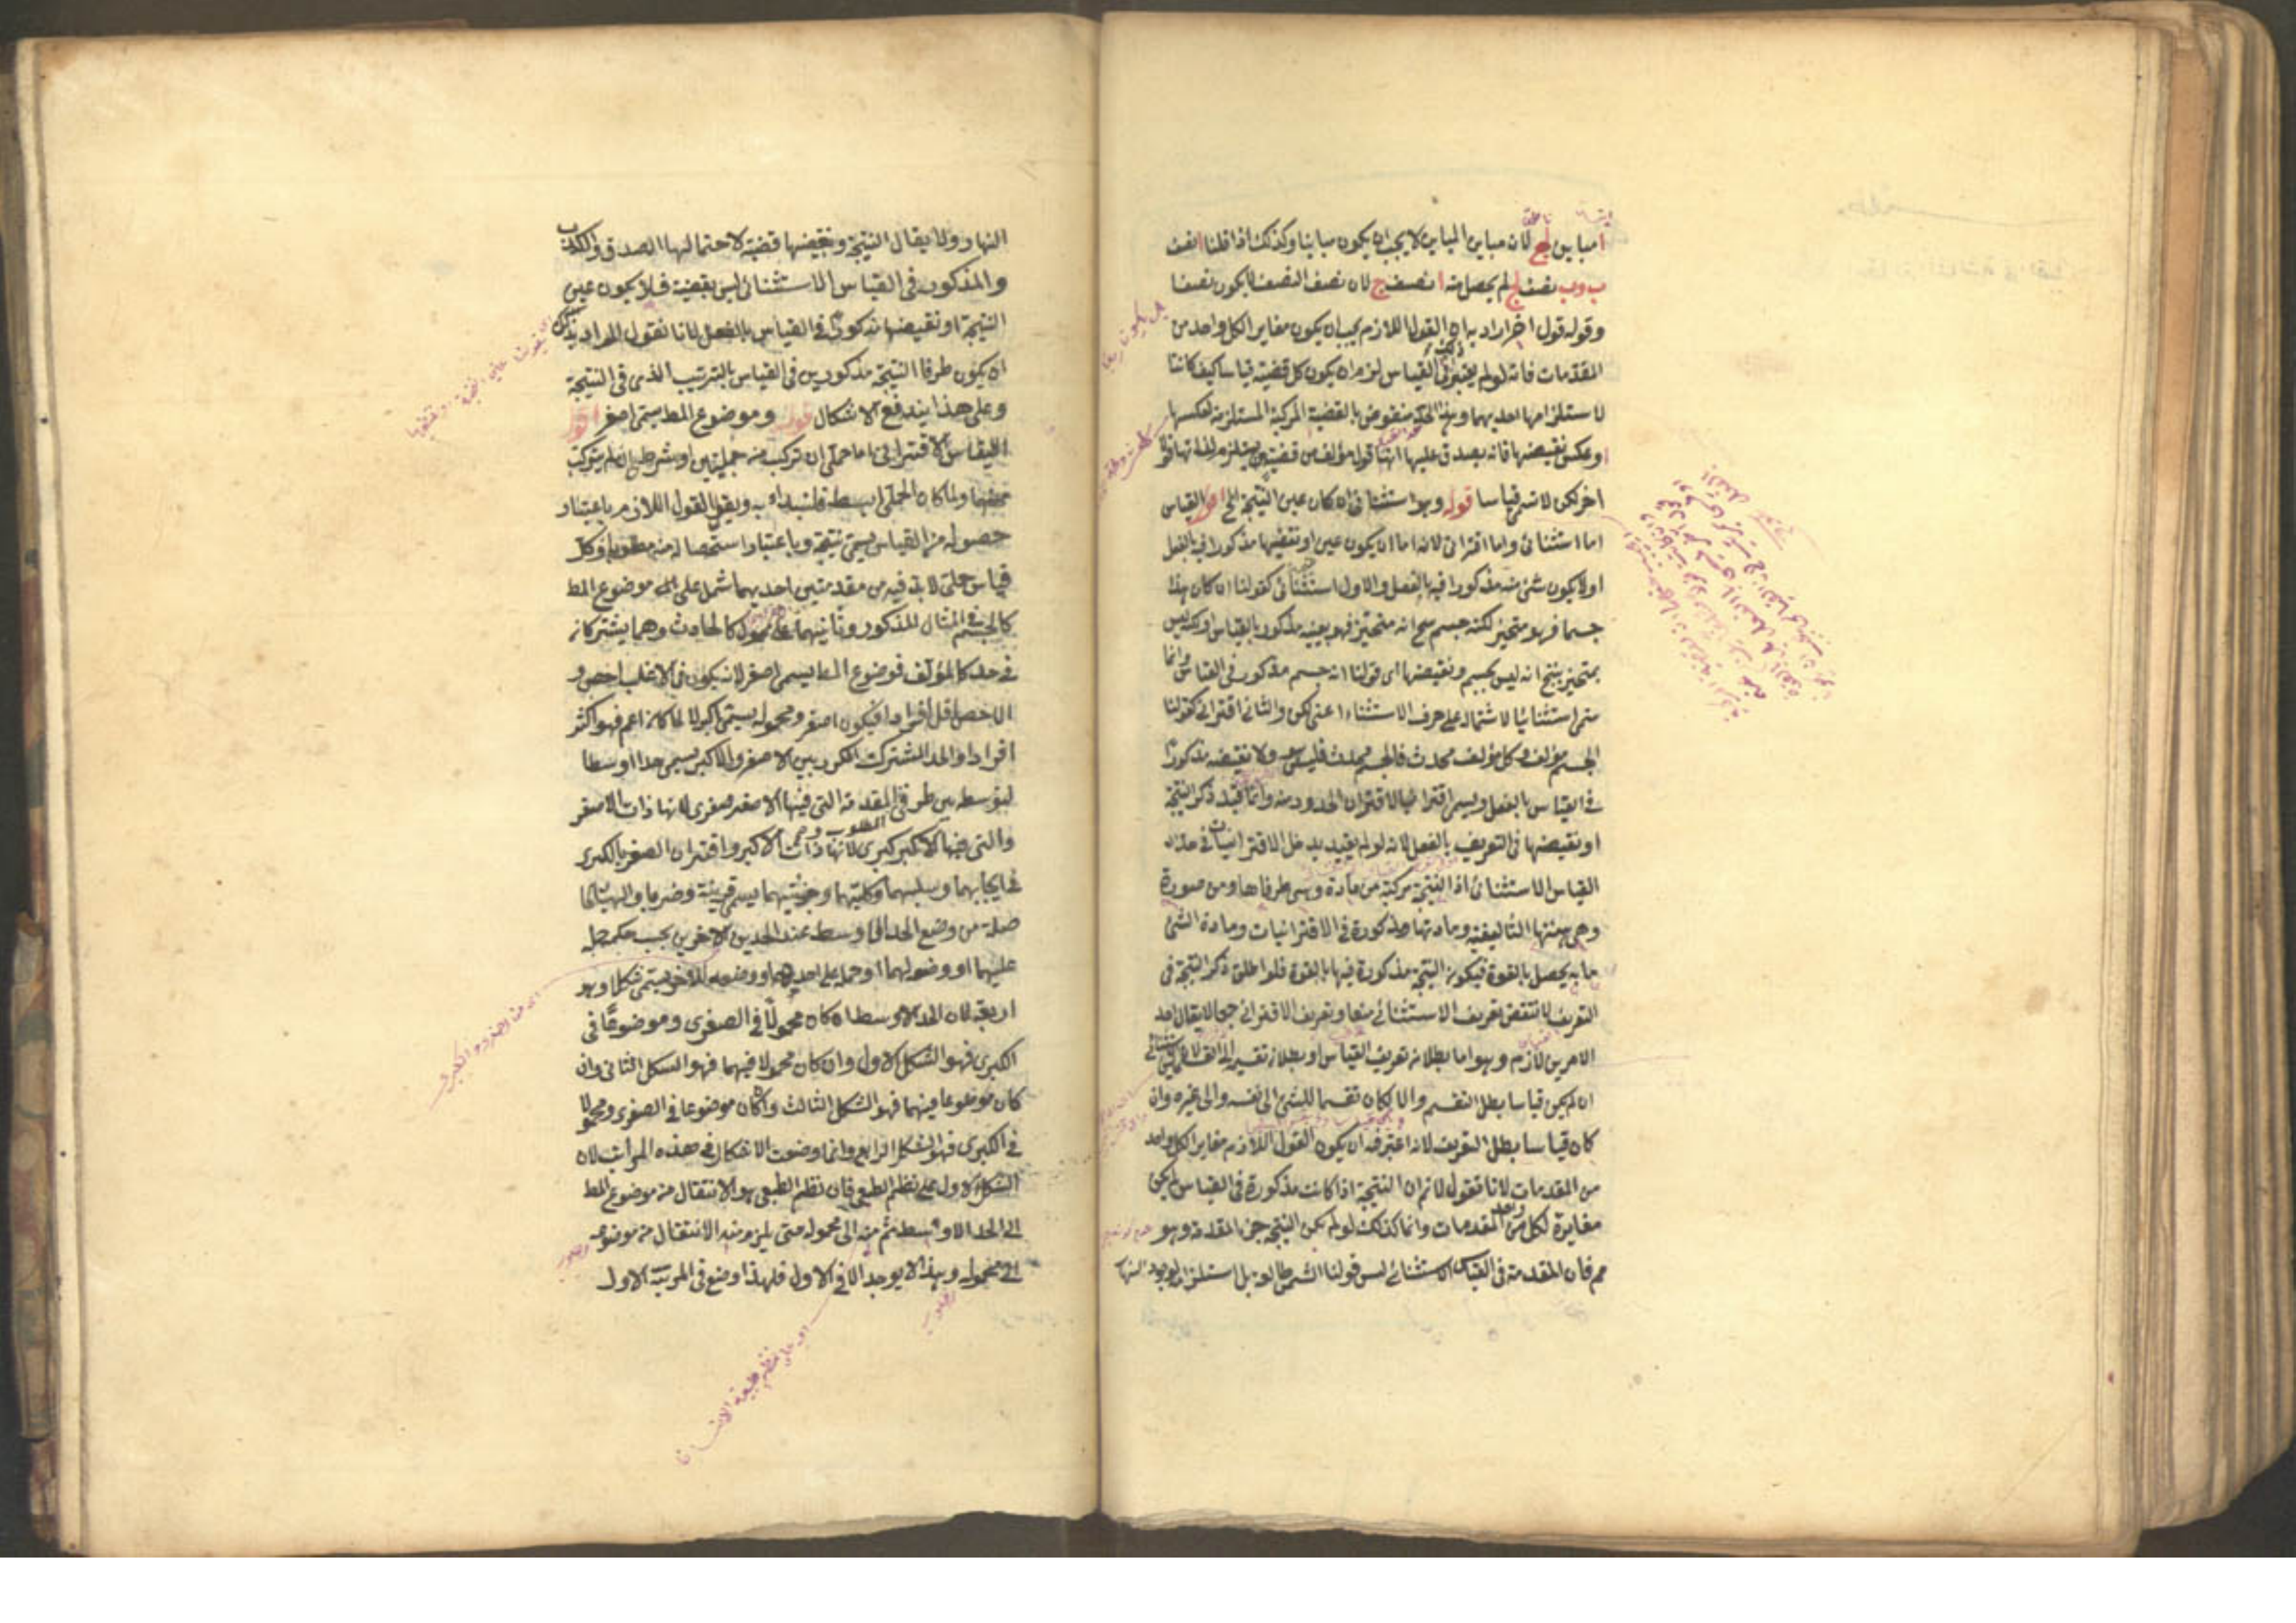 ا مباين لج لان مباين المباين لا يجب ان يكون مباينا وكذلك اذا قلنا ا نصف
ب وب نصف ج لم يحصل منه ا نصف ج لان نصف النصف لا يكون نصفا
وقوله قول اخر اراد به ان القول اللازم يجب ان يكون مغاير الكل واحد من
المقدمات فانه لو لم يعتبر ذلك في القياس لزم ان يكون كل قضيتين قياسا كيف كانتا
لاستلزامها احديهما وهذا الحد منقوض بالقضية المركبة المستلزمة لعكسها
او عكس نقيضها فانه يصدق عليها انها قول مؤلف من قضيتين يستلزم لذاتها قولا
اخر لكن لا تسمى قياسا قوله وهو استثنائي ان كان عين النتيجة الخ اقول القياس
اما استثنائي واما اقتراني لانه اما ان يكون عين او نقيضها مذكورا فيه بالفعل
او لا يكون شئ منه مذكورا فيه بالفعل والاول استثنائي كقولنا ان كان هذا
جسما فهو متحيز لكنه جسم ينتج انه متحيز فهو بعينه مذكور بالقياس او لكنه ليس
بمتحيز ينتج انه ليس بجسم ونقيضها اى قولنا انه جسم مذكور في القياس وانما
سمى استثنائيا لاشتماله على حرف الاستثناء اعنى لكن والثانى اقترانى كقولنا
الجسم مؤلف وكل مؤلف محدث فالجسم محدث فليس هو ولا نقيضه مذكورا
في القياس بالفعل ويسمى اقترانيا لاقتران الحدود منه وانما قيد ذكر النتيجة
او نقيضها في التعريف بالفعل لانه لو لم يقيد يدخل الاقترانيات في حد
القياس الاستثنائى اذا النتيجة مركبة من مادة وهى طرفاها ومن صورة
وهى هيئتها التأليفية ومادتها مذكورة في الاقترانيات ومادة الشئ
ما به يحصل بالقوة فيكون النتيجة مذكورة فيها بالقوة فلو اطلق ذكر النتيجة في
التعريف لانتقض تعريف الاستثنائى منعا وتعريف الاقترانى جمعا لا يقال احد
الامرين لازم وهو اما بطلان تعريف القياس او بطلان تقسيم الى القسمين لان الاستثنائى
ان لم يكن قياسا بطل التقسيم والا لكان تقسيما للشئ الى نفسه والى غيره وان
كان قياسا بطل التعريف لانه اعتبر فيه ان يكون القول اللازم مغاير الكل واحد
من المقدمات لانا نقول لا نم ان النتيجة اذا كانت مذكورة في القياس لم يكن
مغايرة لكل واحد من المقدمات وانما كذلك لو لم يكن النتيجة جزء المقدمة وهو
مم فان المقدمة في القياس الاستثنائى ليس قولنا الشمس طالعة بل استلزام لوجود النهار
النهار ولا يقال النتيجة ونقيضها قضية لاحتمالها الصدق والكذب
والمذكور في القياس الاستثنائى ليس بقضية فلا يكون عين
النتيجة او نقيضها مذكورا في القياس بالفعل لانا نقول المراد بذلك
ان يكون طرفا النتيجة مذكورين في القياس بالترتيب الذى في النتيجة
وعلى هذا يندفع الاشكال قوله وموضوع المط يسمى اصغر اقول
القياس الاقترانى اما حملى ان تركب من حمليتين او شرطى ان لم يتركب
منهما ولما كان الحملى ابسط فلنبداء به ونقول القول اللازم باعتبار
حصوله من القياس يسمى نتيجة وباعتبار استحصاله منه مطلوبا وكل
قياس حملى لابد فيه من مقدمتين احديهما تشمل على موضوع المط
كالجسم في المثال المذكور وثانيهما على محموله كالحادث وهما يشتركان
في حد كالمؤلف فموضوع المط يسمى اصغر لانه يكون في الاغلب اخص و
الاخص اقل افرادا فيكون اصغر ومحموله يسمى اكبر لانه لما كان اعم فهو اكثر
افرادا والحد المشترك المكرر بين الاصغر والاكبر يسمى حدا اوسطا
لتوسطه بين طرفى المطلوب والمقدمة التى فيها الاصغر صغرى لانها ذات الاصغر
والتى فيها الاكبر كبرى لانها ذات الاكبر واقتران الصغرى بالكبرى
في ايجابهما وسلبهما وكليتهما وجزئيتهما يسمى قرينة وضربا والهيئة الحا
صلة من وضع الحد الاوسط عند الحدين الاخرين بحسب حمله
عليهما او وضعه لهما او حمله على احدهما ووضعه للاخر يسمى شكلا وهو
اربعة لان الحد الاوسط ان كان محمولا في الصغرى وموضوعا في
الكبرى فهو الشكل الاول وان كان محمولا فيهما فهو الشكل الثانى وان
كان موضوعا فيهما فهو الشكل الثالث وان كان موضوعا في الصغرى ومحمولا
في الكبرى فهو الشكل الرابع وانما وضعت الاشكال في هذه المراتب لان
الشكل الاول على نظم الطبع فان نظم الطبعى هو الانتقال من موضوع المط
الى الحد الاوسط ثم منه الى محموله حتى يلزم منه الانتقال من موضوعه
الى محموله وهذا لا يوجد الا في الاول فلهذا وضع في المرتبة الاول
اى على نظم طبيعة الانسان